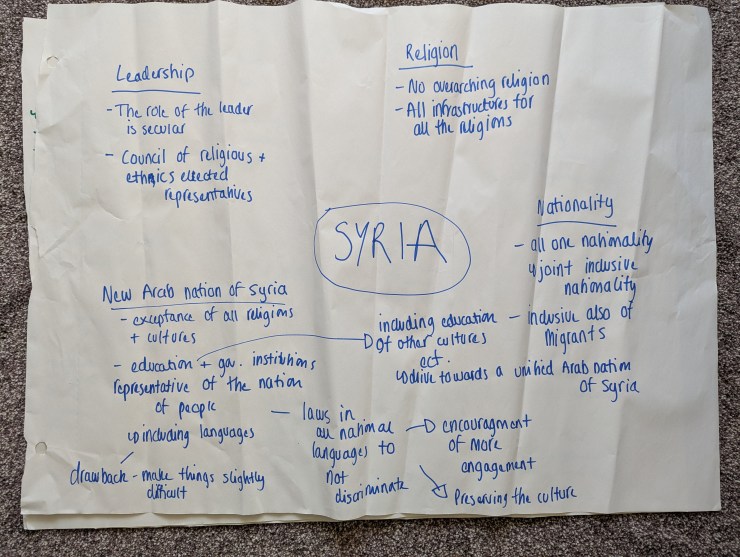 Leadership
- The role of the leader
is secular
- Council of religious +
ethnics elected
representatives
Religion
- No overarching religion
- All infrastructures for
all the religions
SYRIA
Nationality
- all one nationality
↳ joint inclusive
nationality
- inclusive also of
Migrants
New Arab nation of Syria
- exceptance of all religions
+ cultures
- education + gov. institutions
representative of the nation
of people
↳ including languages
drawback - make things slightly
difficult
including education
of other cultures
ect.
↳ drive towards a unified Arab nation
of Syria
— laws in
all national
languages to
not
discriminate
encouragment
of more
engagement
Preserving the culture